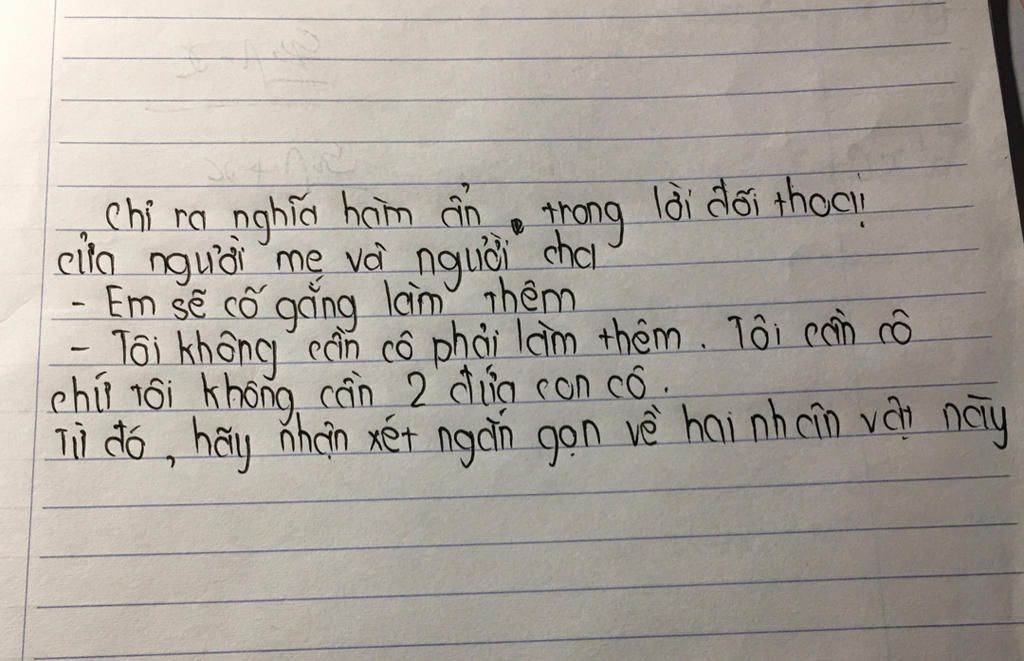 Chỉ ra nghĩa hàm ẩn trong lời đối thoại
của người mẹ và người cha
- Em sẽ cố gắng làm thêm
- Tôi không cần cô phải làm thêm. Tôi cần cô
chứ tôi không cần 2 đứa con cô.
Từ đó, hãy nhận xét ngắn gọn về hai nhân vật này